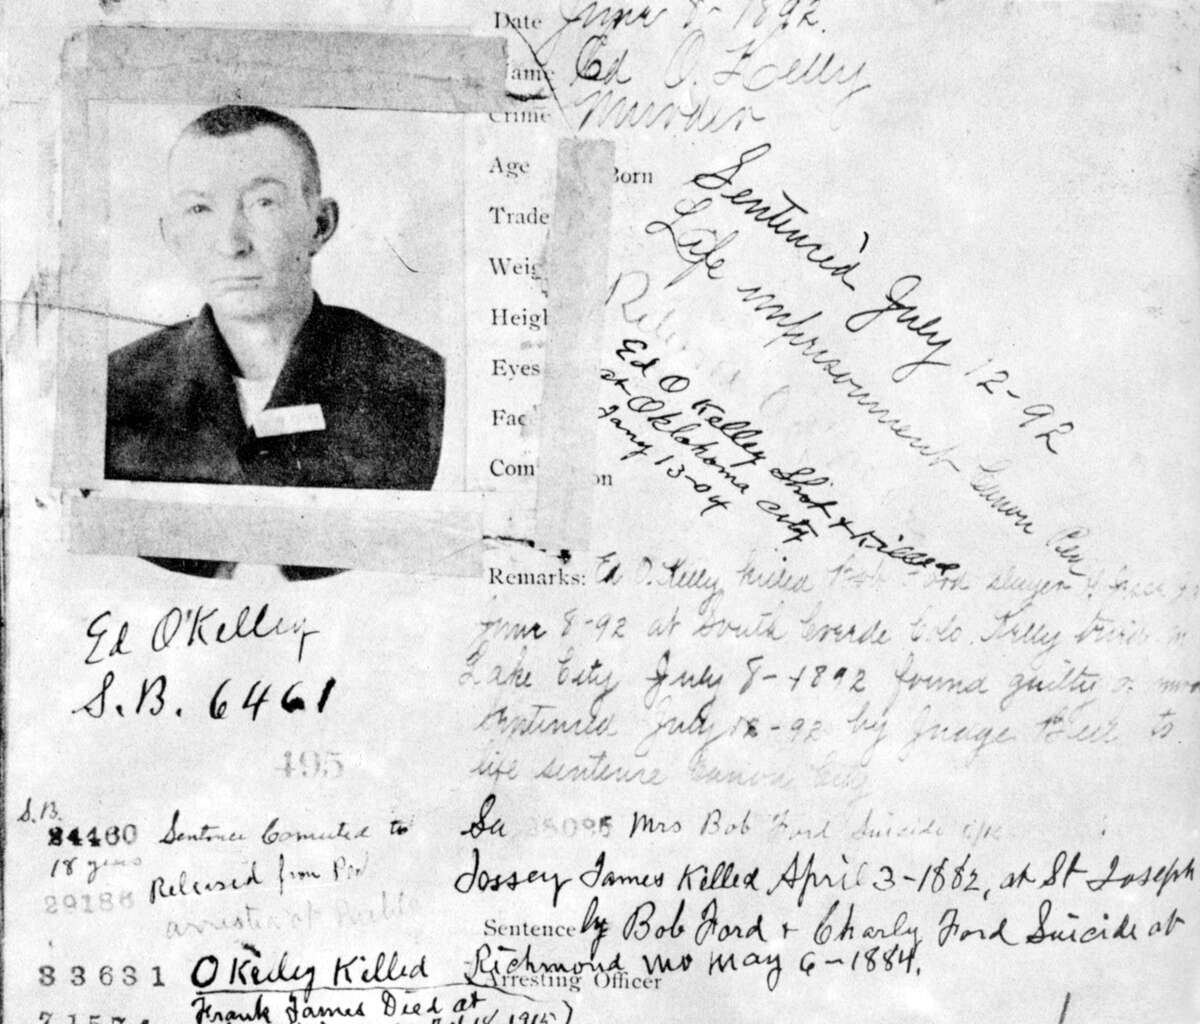 Date June 8- 1892.
Name Ed O. Kelly
Crime Murder
Age Born
Trade
Weig
Heigh
Eyes
Fac
Com on
Sentenced July 12-92
Life imprisonment Canon Pen
Ed O Kelley Shot & Killed
at Oklahoma City
Jany 13-04
Remarks: Ed O. Kelly killed Bob Ford slayer of
June 8-92 at South Creede Colo. Kelly tried in
Lake City July 8-1892 found guilty
sentenced July 12-92 by Judge to
life sentence Canon City
Ed O'Kelley
S.B. 6461
495
S.B.
24460 Sentence Comuted to
18 years
Released from Pen
29186
arrested at Pueblo
33631 O Kelley Killed
Frank James Died at
1915)
See 28095 Mrs Bob Ford Suicide
Jossey James Killed April 3-1882, at St Joseph
Sentence by Bob Ford & Charly Ford Suicide at
Richmond Mo May 6-1884.
Arresting Officer